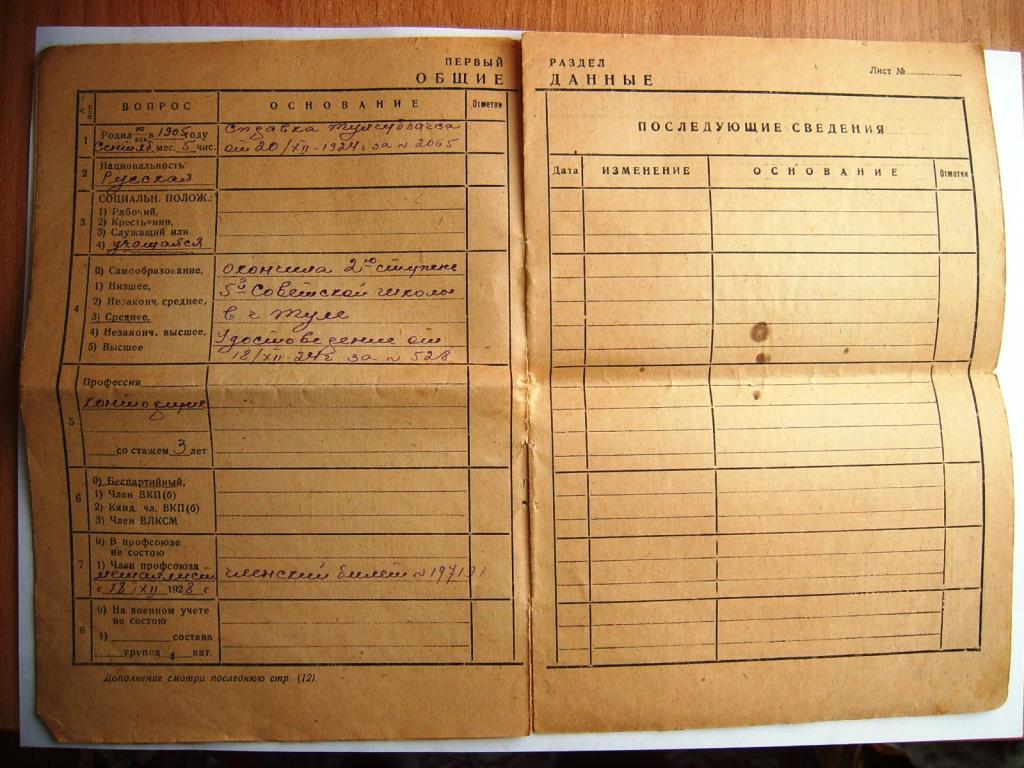 ПЕРВЫЙ РАЗДЕЛ
ОБЩИЕ ДАННЫЕ
Лист №
ВОПРОС ОСНОВАНИЕ Отметки
1 Родил в 1905 году
Сентяб. мес. 5 чис.
Справка
от 20/XII-1924 г за № 2065
2 Национальность
Русская
3 СОЦИАЛЬН. ПОЛОЖ.:
1) Рабочий,
2) Крестьянин,
3) Служащий или
4) учащаяся
4 0) Самообразование,
1) Низшее,
2) Незаконч. среднее,
3) Среднее,
4) Незаконч. высшее,
5) Высшее
Окончила 2ю ступень
5й Советской школы
в г Туле
Удостоверение от
18/XII-24 г за № 528
5 Профессия
со стажем 3 лет
6 0) Беспартийный,
1) Член ВКП(б)
2) Канд. чл. ВКП(б)
3) Член ВЛКСМ
7 0) В профсоюзе
не состою
1) Член профсоюза -
металлист
с 18/XII 1928 г
членский билет №
8 0) На военном учете
не состою
1) состава
группа кат.
Дополнение смотри последнюю стр. (12).
ПОСЛЕДУЮЩИЕ СВЕДЕНИЯ
Дата ИЗМЕНЕНИЕ ОСНОВАНИЕ Отметки